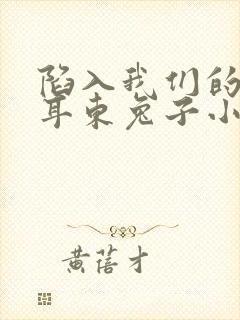 陷入我们的
耳朿兔子小
黄蓓才